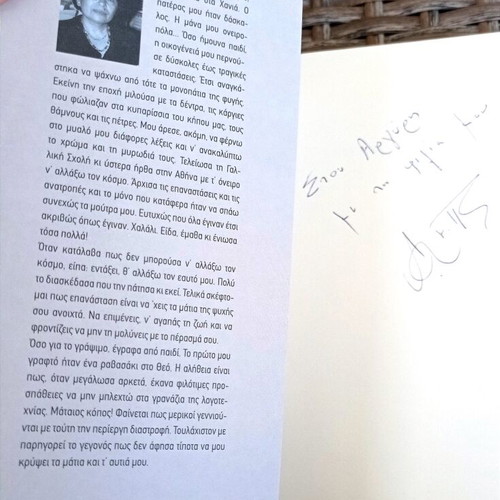 στα Χανιά. Ο
πατέρας μου ήταν δάσκα-
λος. Η μάνα μου ονειρο-
πόλα... Όσο ήμουνα παιδί,
η οικογένειά μου περνού-
σε δύσκολες έως τραγικές
καταστάσεις. Έτσι αναγκά-
στηκα να ψάχνω από τότε τα μονοπάτια της φυγής.
Εκείνη την εποχή μιλούσα με τα δέντρα, τις κάργιες
που φώλιαζαν στα κυπαρίσσια του κήπου μας, τους
θάμνους και τις πέτρες. Μου άρεσε, ακόμη, να φέρνω
στο μυαλό μου διάφορες λέξεις και ν' ανακαλύπτω
το χρώμα και τη μυρωδιά τους. Τελείωσα τη Γαλ-
λική Σχολή κι ύστερα ήρθα στην Αθήνα με τ' όνειρο
ν' αλλάξω τον κόσμο. Άρχισα τις επαναστάσεις και τις
ανατροπές και το μόνο που κατάφερα ήταν να σπάω
συνεχώς τα μούτρα μου. Ευτυχώς που όλα έγιναν έτσι
ακριβώς όπως έγιναν. Χαλάλι. Είδα, έμαθα κι ένιωσα
τόσα πολλά!
Όταν κατάλαβα πως δεν μπορούσα ν' αλλάξω τον
κόσμο, είπα: εντάξει, θ' αλλάξω τον εαυτό μου. Πολύ
το διασκέδασα που την πάτησα κι εκεί. Τελικά σκέφτο-
μαι πως επανάσταση είναι να 'χεις τα μάτια της ψυχής
σου ανοιχτά. Να επιμένεις, ν' αγαπάς τη ζωή και να
φροντίζεις να μην τη μολύνεις με το πέρασμά σου.
Όσο για το γράψιμο, έγραφα από παιδί. Το πρώτο μου
γραφτό ήταν ένα ραβασάκι στο Θεό. Η αλήθεια είναι
πως, όταν μεγάλωσα αρκετά, έκανα φιλότιμες προ-
σπάθειες να μην μπλεχτώ στα γρανάζια της λογοτε-
χνίας. Μάταιος κόπος! Φαίνεται πως μερικοί γεννιού-
νται με τούτη την περίεργη διαστροφή. Τουλάχιστον με
παρηγορεί το γεγονός πως δεν άφησα τίποτα να μου
κρύψει τα μάτια και τ' αυτιά μου.
Στον
με τη φιλία μου